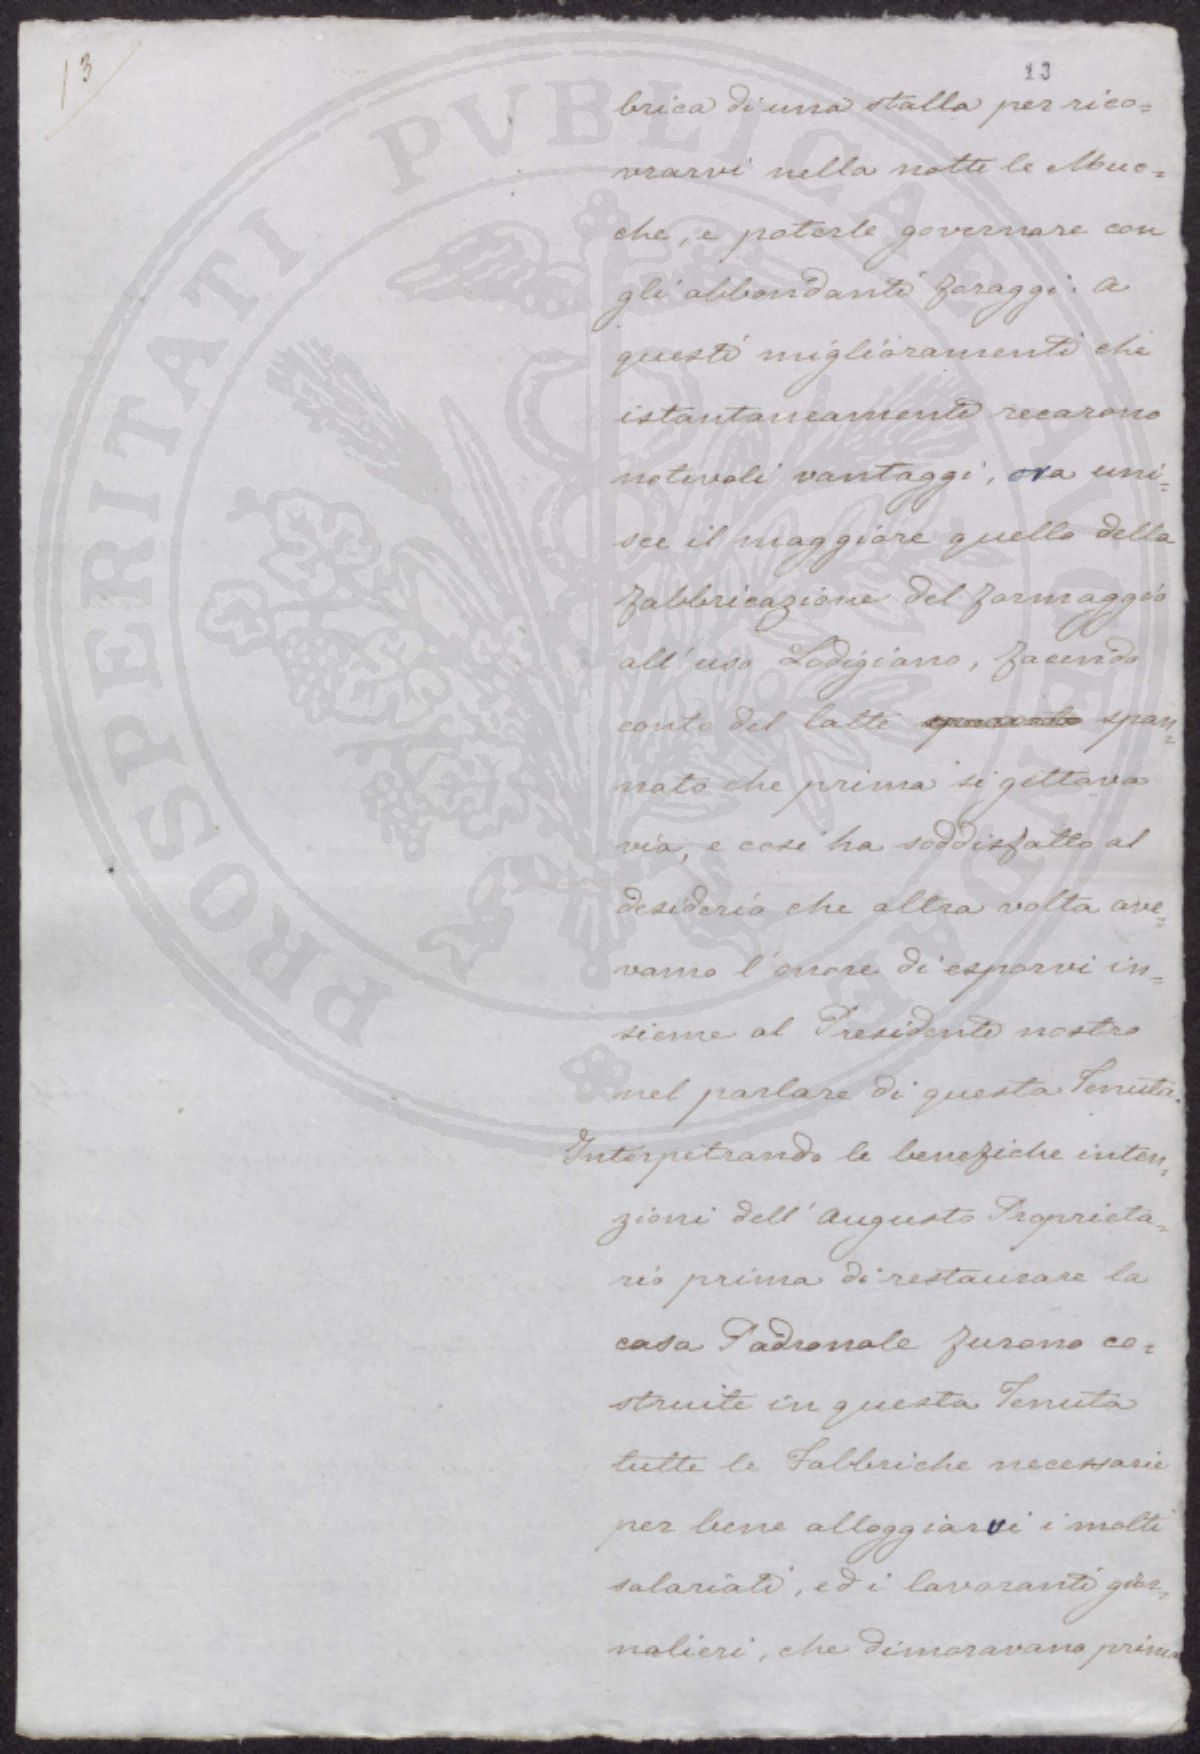 13
13
brica di una stalla per rico=
vrarvi nella notte le Muc=
che, e poterle governare con
gli abbondanti foraggi. A
questi miglioramenti che
istantaneamente recarono
notevoli vantaggi, ora uni=
sce il maggiore quello della
fabbricazione del formaggio
all'uso Lodigiano, facendo
conto del latte span=
nato che prima si gettava
via, e così ha soddisfatto al
desiderio che altra volta ave=
vamo l'onore di esporvi in=
sieme al Presidente nostro
nel parlare di questa Tenuta.
Interpetrando le benefiche inten=
zioni dell'Augusto Proprieta=
rio prima di restaurare la
casa Padronale furono co=
struite in questa Tenuta
tutte le Fabbriche necessarie
per bene alloggiarvi i molti
salariati, ed i lavoranti gior=
nalieri, che dimoravano prima
PROSPERITATI PVBLICAE AVGENDAE